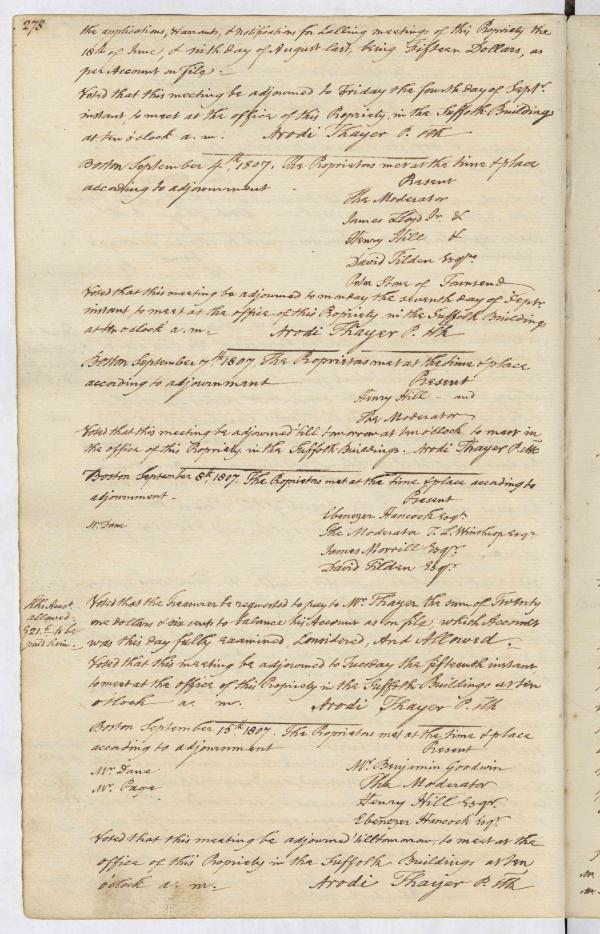 278
the applications, Warrants, & notifications for calling meetings of this Propriety the
18th of June, & ninth day of August last, being Fifteen Dollars, as
per Account on file.
Voted that this meeting be adjourned to Friday the fourth day of Septr.
instant, to meet at the office of this Propriety, in the Suffolk Buildings
at ten o'clock a. m. Arodi Thayer P. Clk
Boston September 4th, 1807. The Proprietors met at the time & place
according to adjournment
Present
The Moderator
James Lloyd Jr. &
Henry Hill &
David Tilden Esqrs.
Peter Stone of Townsend
Voted that this meeting be adjourned to monday the seventh day of Septr
instant, to meet at the office of this Propriety, in the Suffolk Buildings
at ten o'clock a. m. Arodi Thayer P. Clk
Boston September 7th 1807. The Proprietors met at the time & place
according to adjournment
Present
Henry Hill - and
The Moderator
Voted that this meeting be adjourned 'till tomorrow at ten o'clock to meet in
the office of this Propriety in the Suffolk Buildings. Arodi Thayer P. Clk
Boston September 8th 1807. The Proprietors met at the time & place according to
adjournment -
Present
Mr. Dane
Ebenezer Hancock Esqr.
The Moderator T. L. Winthrop Esqr.
James Morrill Esqr.
David Tilden Esqr.
Acct.
allowed.
$21.6 to be
paid him.
Voted that the Treasurer be requested to pay to Mr. Thayer the sum of Twenty
one dollars & six cents to balance his Account as on file, which Account
was this day fully examined, Considered, And Allowed.
Voted that this meeting be adjourned to Tuesday the fifteenth instant,
to meet at the office of this Propriety in the Suffolk Buildings at ten
o'clock a. m. Arodi Thayer P. Clk
Boston September 15th 1807. The Proprietors met at the time & place
according to adjournment
Present
Mr. Dane
Mr. Page
Mr. Benjamin Goodwin
The Moderator
Henry Hill Esqr.
Ebenezer Hancock Esqr.
Voted that this meeting be adjourned 'till tomorrow, to meet at the
office of this Propriety in the Suffolk Buildings at ten,
o'clock a. m. Arodi Thayer P. Clk